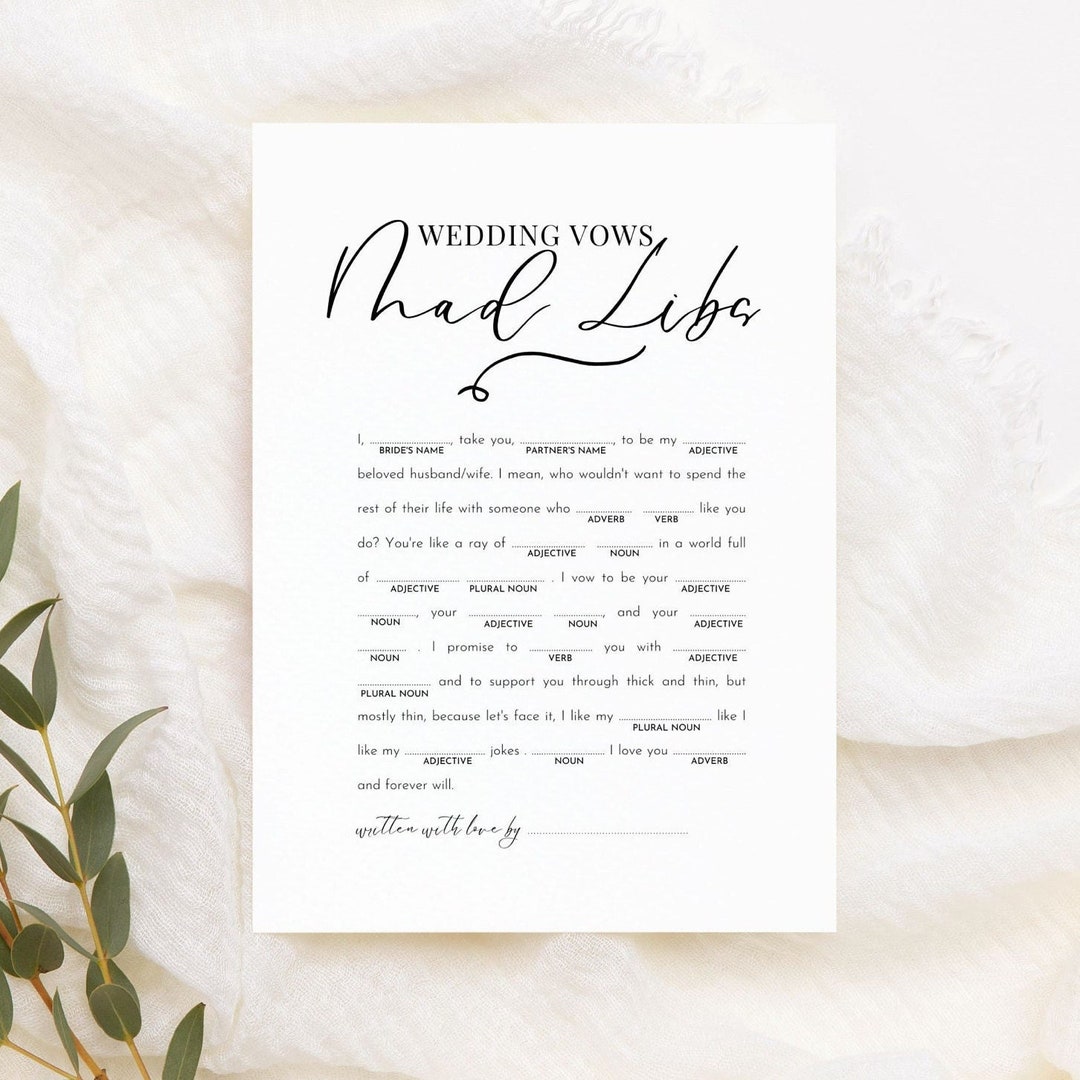 WEDDING VOWS
Mad Libs
I, ...................., take you, ...................., to be my ....................
BRIDE'S NAME PARTNER'S NAME ADJECTIVE
beloved husband/wife. I mean, who wouldn't want to spend the
rest of their life with someone who .................... .................... like you
ADVERB VERB
do? You're like a ray of .................... .................... in a world full
ADJECTIVE NOUN
of .................... .................... . I vow to be your ....................
ADJECTIVE PLURAL NOUN ADJECTIVE
...................., your .................... ...................., and your ....................
NOUN ADJECTIVE NOUN ADJECTIVE
.................... . I promise to .................... you with ....................
NOUN VERB ADJECTIVE
.................... and to support you through thick and thin, but
PLURAL NOUN
mostly thin, because let's face it, I like my .................... like I
PLURAL NOUN
like my .................... jokes . .................... I love you ....................
ADJECTIVE NOUN ADVERB
and forever will.
written with love by ....................